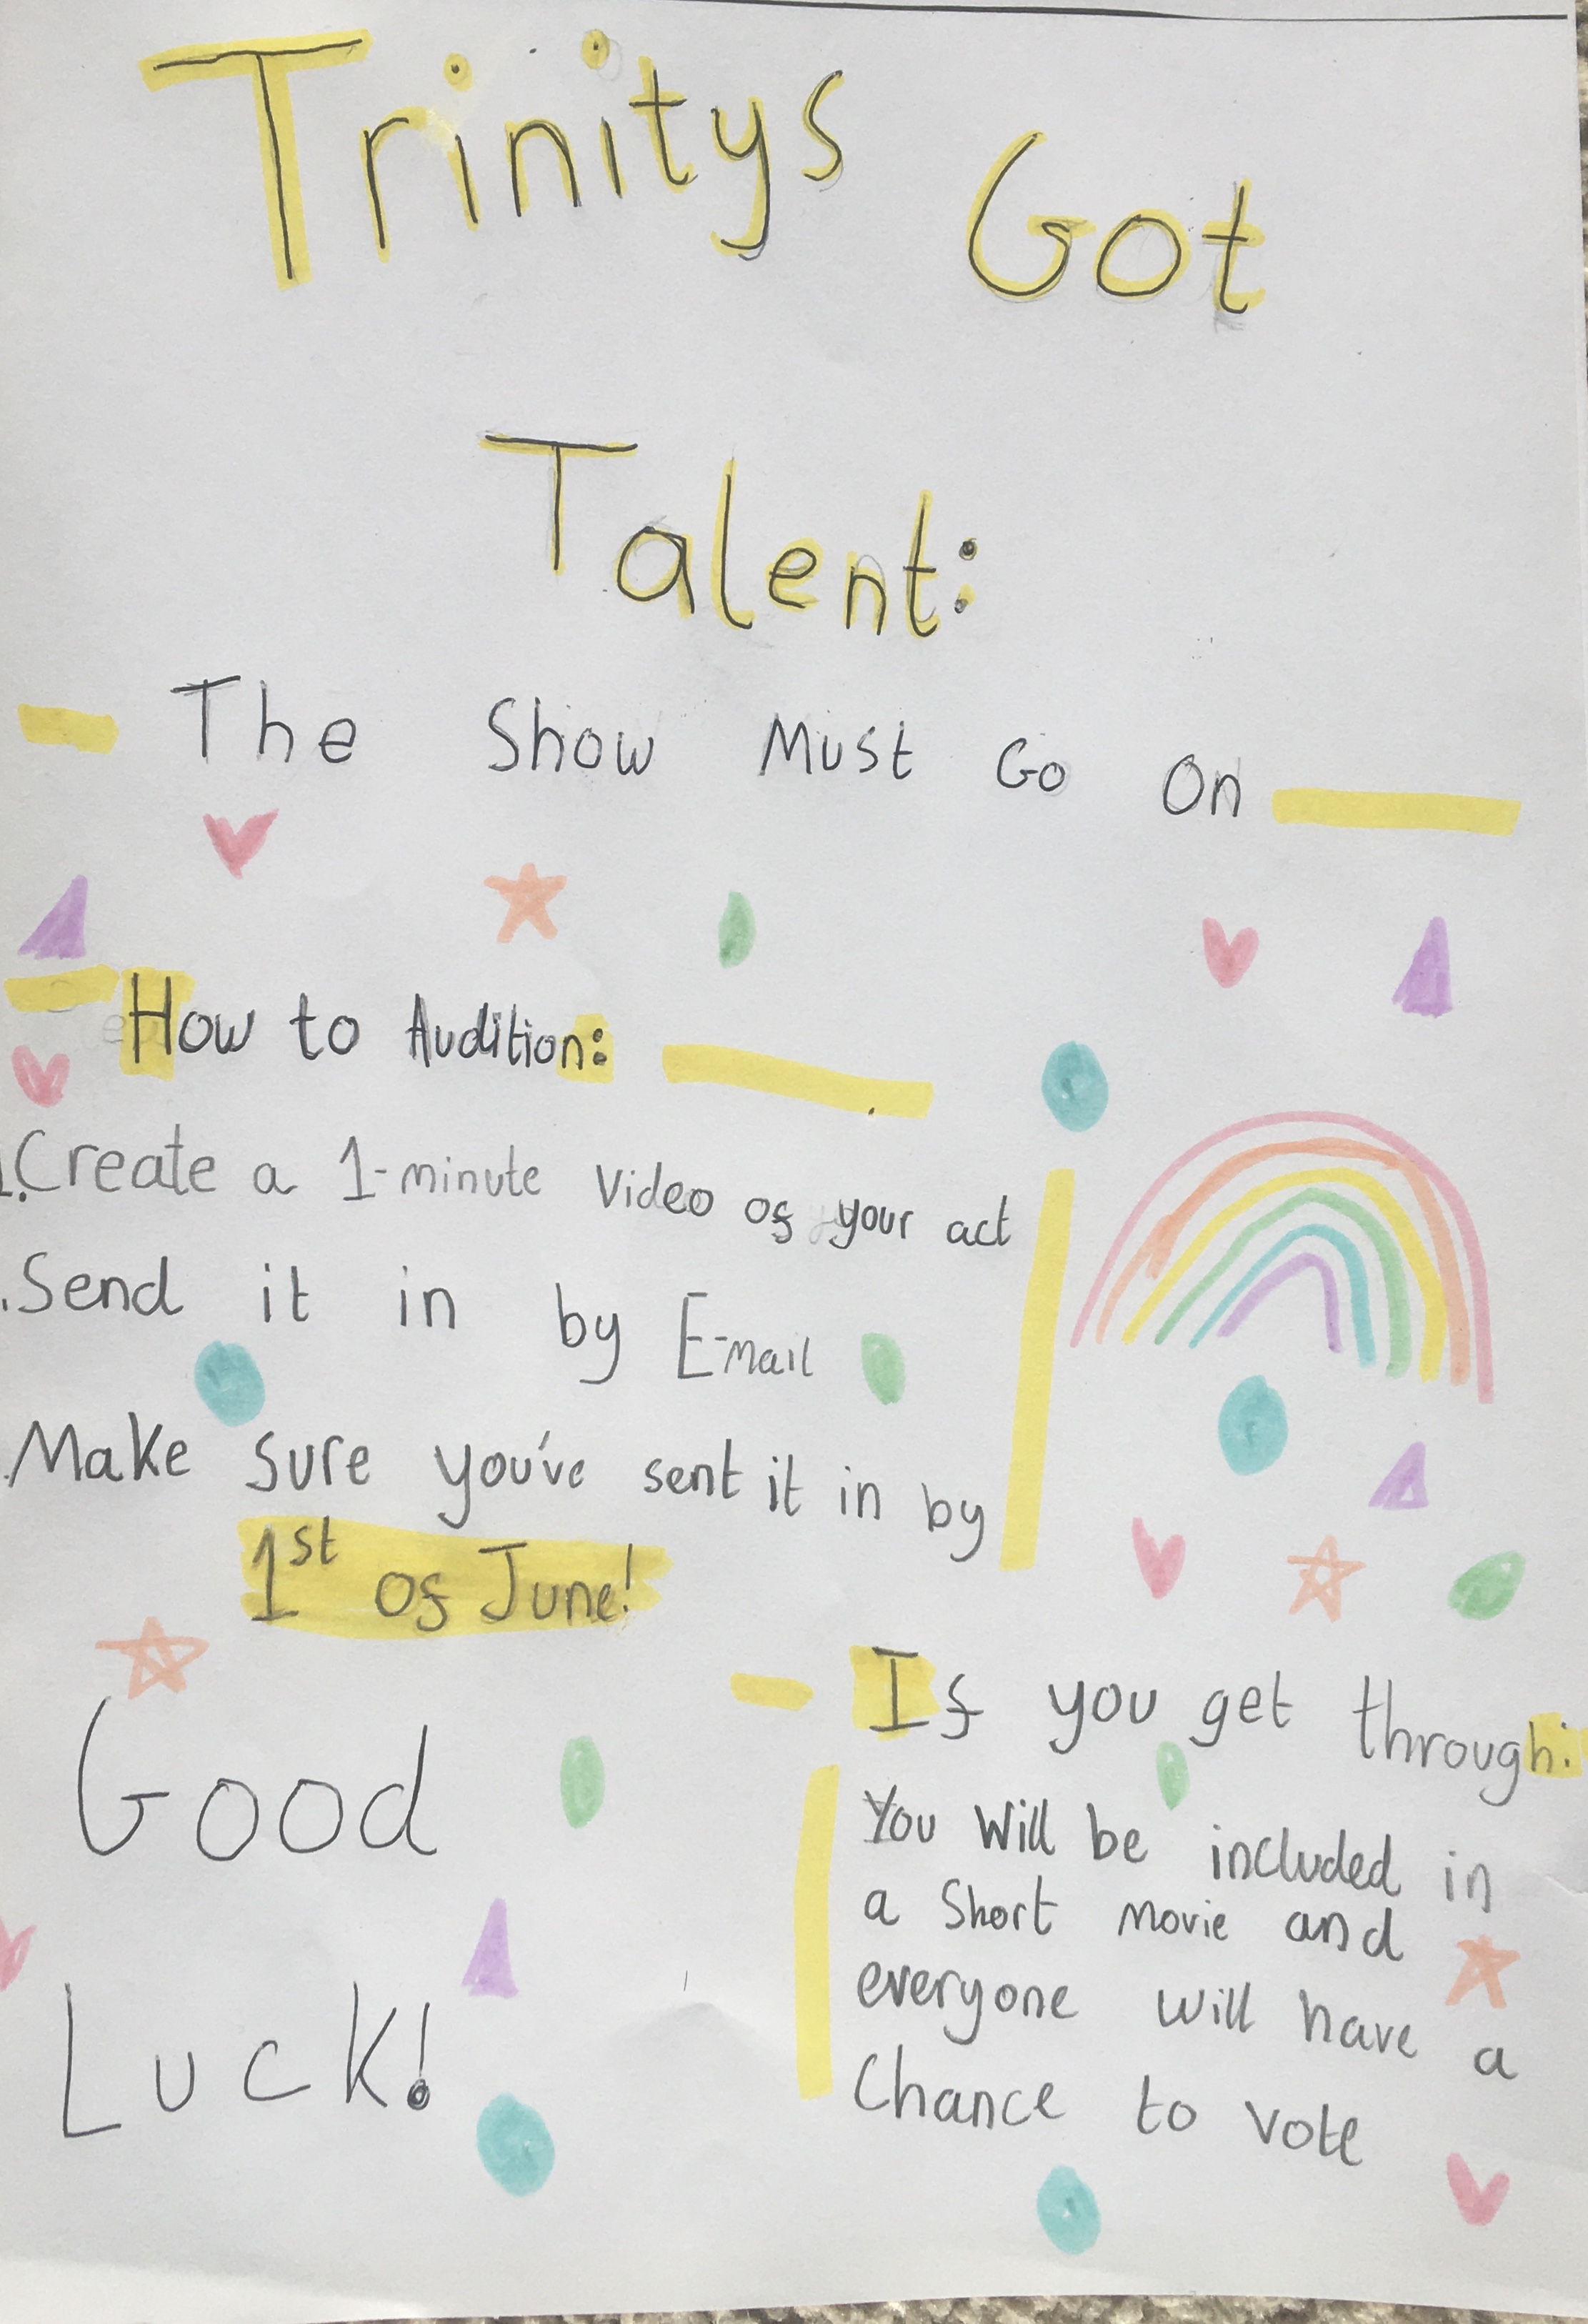 Trinitys Got
Talent:
The Show Must Go On
How to Audition:
1.Create a 1-minute Video of your act
.Send it in by E-mail
.Make sure you've sent it in by
1st of June!
If you get through:
You Will be included in
a Short Movie and
everyone will have a
Chance to vote
Good
Luck!